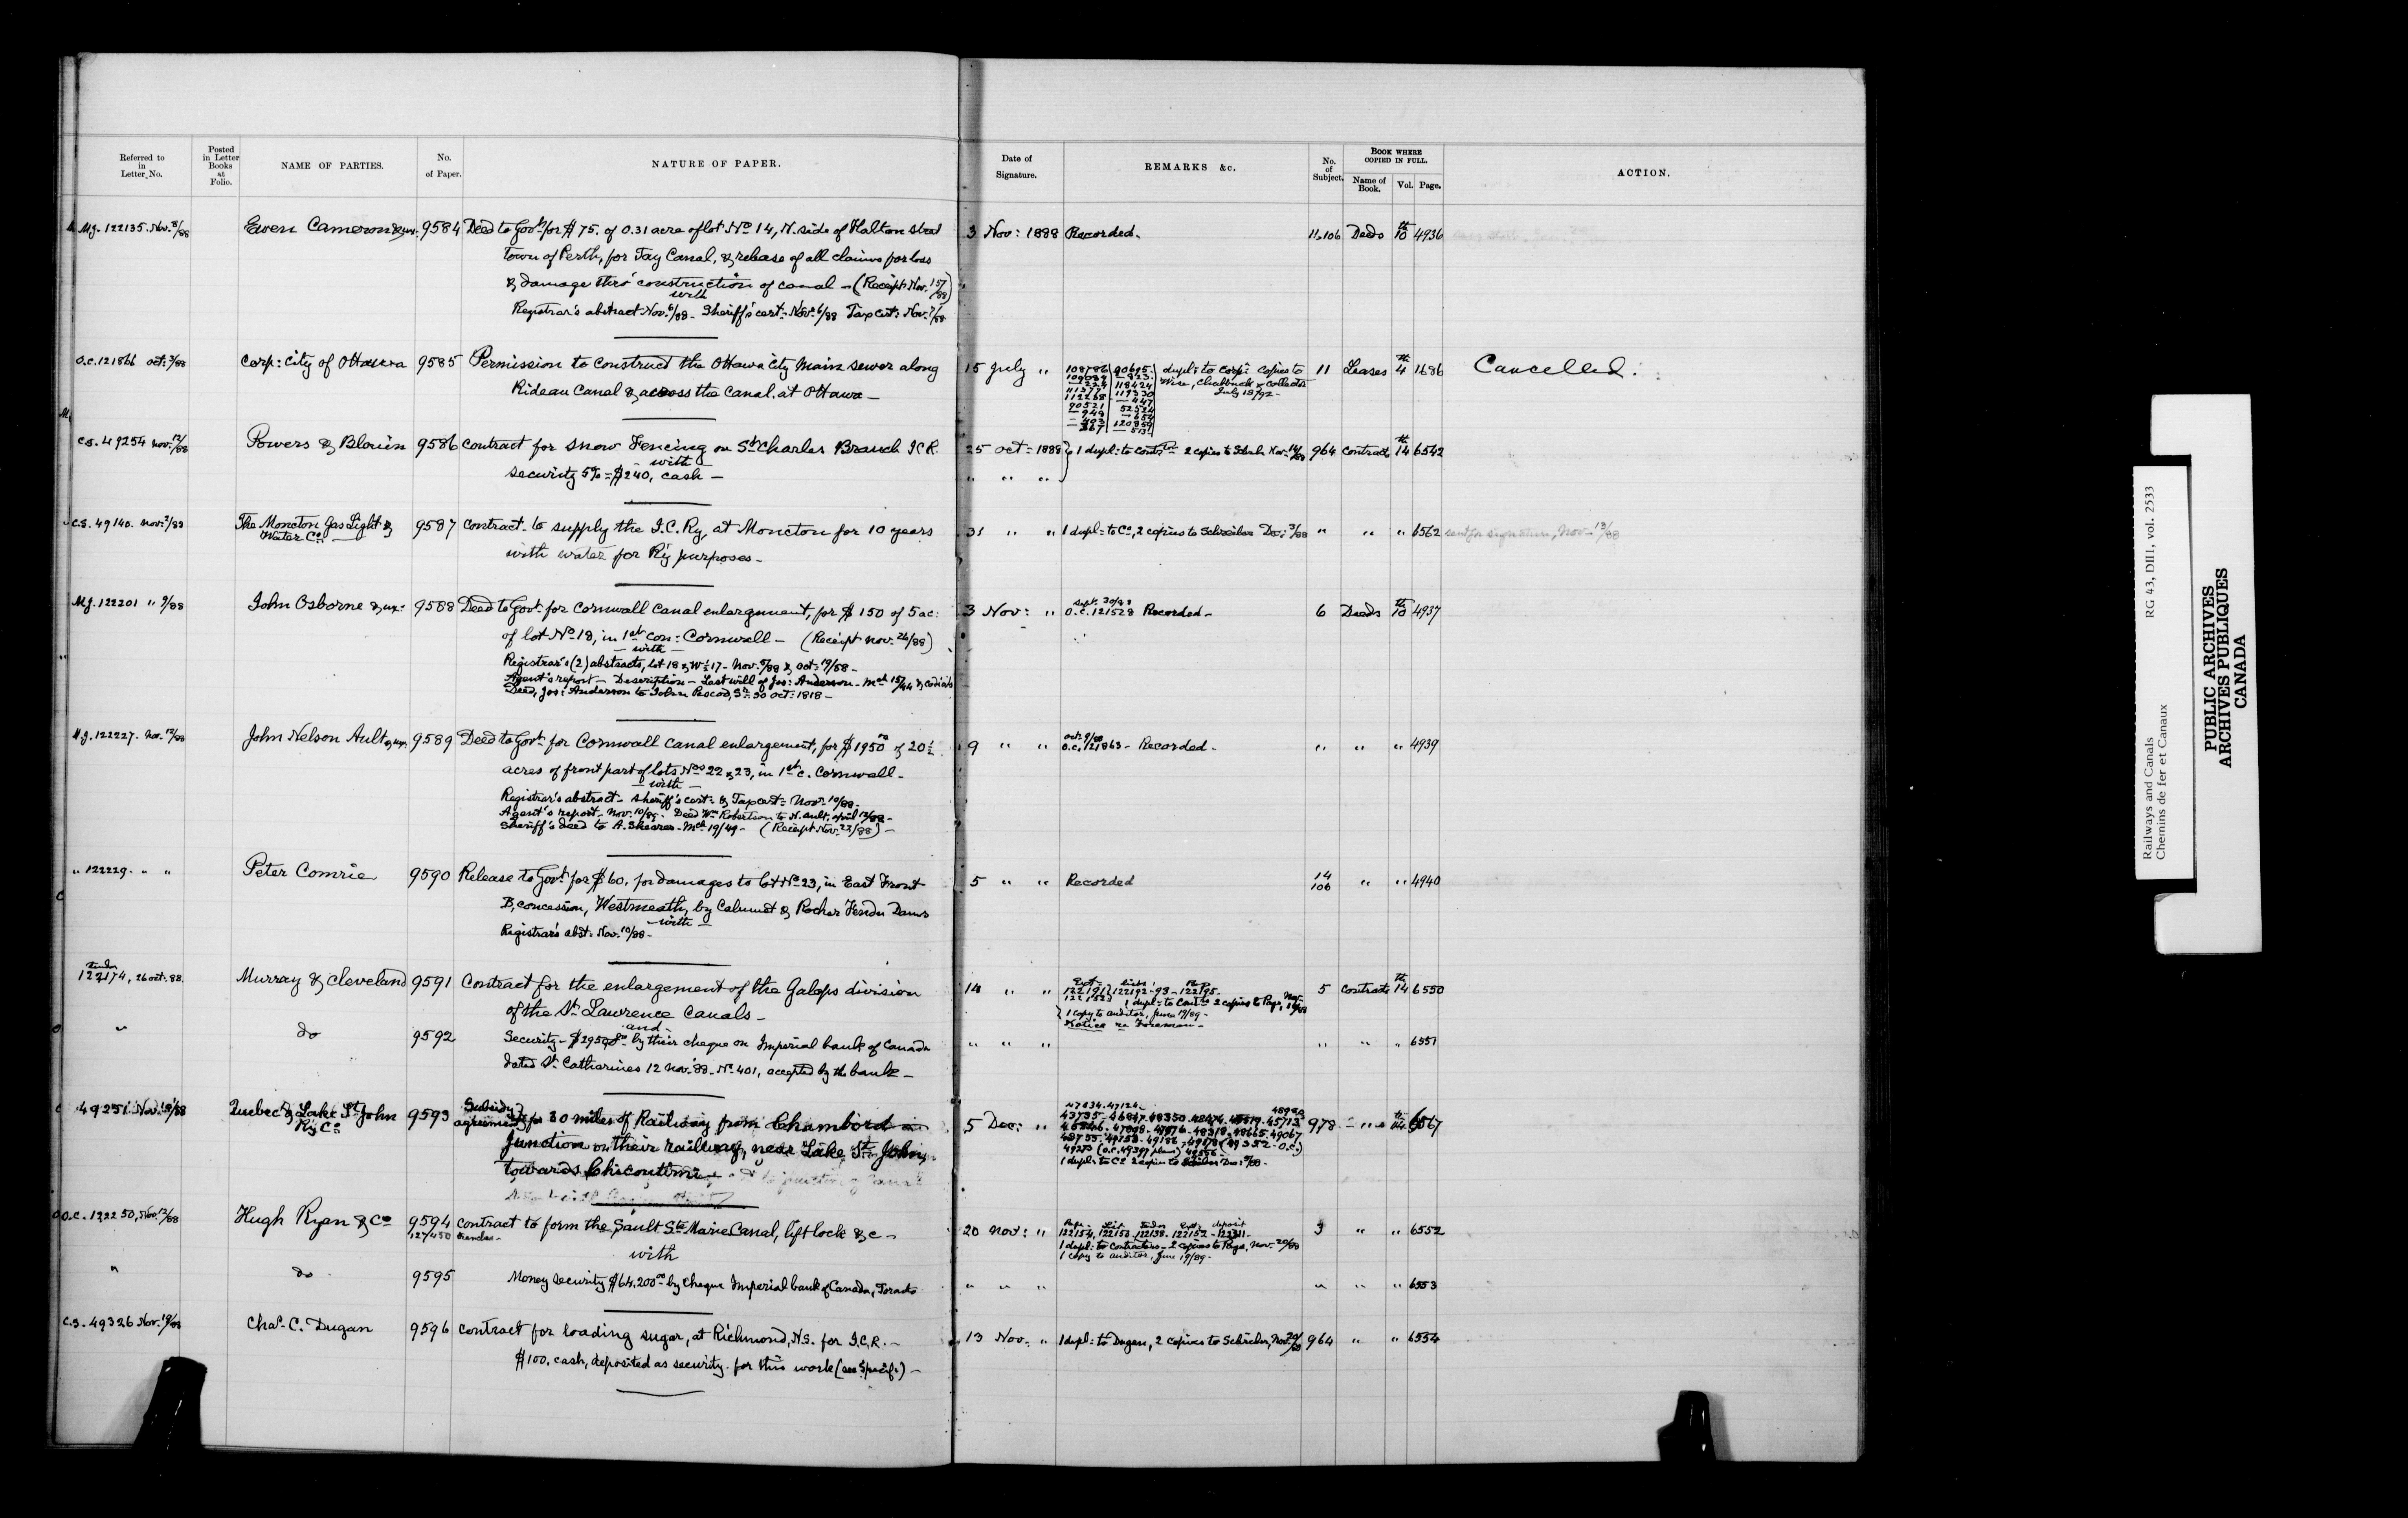 Referred to in Letter No.
Posted in Letter Books at Folio.
NAME OF PARTIES.
No. of Paper.
NATURE OF PAPER.
Date of Signature.
REMARKS &c.
No. of Subject.
BOOK WHERE COPIED IN FULL.
Name of Book. Vol. Page.
ACTION.
M.J. 122135. Nov. 8/88 Ewen Cameron & ux. 9584 Deed to Govt for $75. of 0.31 acre of lot No 14, N. side of Halton street 3 Nov: 1888 Recorded. 11.106 Deeds 10th 4936
town of Perth, for Tay Canal, & release of all claims for loss
& damage thro' construction of canal - (Receipt Nov. 15/88)
with
Registrar's abstract Nov. 6/88 - Sheriff's cert: Nov. 6/88 Tax cert: Nov. 7/88
O.C. 121866 oct: 3/88 Corp: City of Ottawa 9585 Permission to construct the Ottawa City Main sewer along 15 July " dupl: to Corp: Copies to 11 Leases 4th 1686 Cancelled.
Rideau Canal & across the Canal at Ottawa - July 18/92 -
C.S. 49254 Nov. 12/88 Powers & Blouin 9586 Contract for snow Fencing on St Charles Branch I.C.R. 25 oct: 1888 1 dupl: to Contr 2 copies to Schreiber Nov. 964 Contracts 14th 6542
with
security 5% = $240, cash - " " "
C.S. 49140. Nov. 7/88 The Moncton Gas Light & Water Co. 9587 Contract to supply the I.C. Ry, at Moncton for 10 years 31 " " 1 dupl: to Co, 2 copies to Schreiber Dec: 3/88 " " " 6562 sent for signature, Nov. 13/88
with water for Ry purposes -
M.J. 122201 " 9/88 John Osborne & ux: 9588 Deed to Govt for Cornwall canal enlargement, for $150 of 5 ac: 3 Nov: " Sept. 30/88 O.C. 121528 Recorded - 6 Deeds 10th 4937
of lot No 18, in 1st con: Cornwall - (Receipt Nov. 26/88)
- with -
Registrar's (2) abstracts, lot 18 & W½ 17 - Nov. 5/88 & oct: 19/88 -
Agent's report - Description - Last will of Jos: Anderson - Mch 15/44 & codicils
Deed, Jos: Anderson to John Pescod, Sr 30 oct: 1818 -
M.J. 122227. Nov. 12/88 John Nelson Ault & ux. 9589 Deed to Govt for Cornwall canal enlargement, for $1950 of 20½ 9 " " oct. 9/88 O.C. 121863 - Recorded - " " " 4939
acres of front part of lots Nos 22 & 23, in 1st c. Cornwall -
- with -
Registrar's abstract - Sheriff's cert: & Tax cert: Nov. 10/88 -
Agent's report - Nov. 10/88 - Deed Wm Robertson to N. Ault, april 12/82 -
Sheriff's deed to A. Shearer - Mch 19/49 - (Receipt Nov. 23/88) -
" 122229. " " Peter Comrie 9590 Release to Govt for $60. for damages to lot No 23, in East Front 5 " " Recorded 14 106 " " 4940
B, concession, Westmeath, by Calumet & Rocher Fendu Dams
- with -
Registrar's abst: Nov. 10/88 -
Tender 122174, 26 oct. 88. Murray & Cleveland 9591 Contract for the enlargement of the Galops division 14 " " 122191 122192-93-122195 5 Contracts 14th 6550
of the St. Lawrence Canals - 1 dupl: to Contrs 2 copies to Page, Nov.
and 1 copy to auditor, June 19/89 -
" do 9592 Security - by their cheque on Imperial bank of Canada Notice re Foreman - " " " " " " 6551
dated St. Catharines 12 Nov. 88 - No 401, accepted by the bank -
49251 Nov. Quebec & Lake St John Ry Co 9593 Subsidy agreement for 30 miles of Railway from Chambord 5 Dec: " 978 " " 14th 6567
Junction on their railway, near Lake St. John,
towards Chicoutimi 1 dupl: to Co 2 copies to Schreiber Dec:
O.C. 122250, Nov. 13/88 Hugh Ryan & Co 9594 Contract to form the Sault Ste Marie Canal, lift lock &c - 20 Nov: " 122154, 122153, 122138 - 122152 - 122311 - 3 " " 6552
with 1 dupl: to Contractors - 2 copies to Page, Nov. 20/88
1 copy to auditor, June 19/89 -
" do 9595 Money security $64,200.00 by cheque Imperial bank of Canada, Toronto " " " " " " 6553
C.S. 49326 Nov. 19/88 Chas. C. Dugan 9596 Contract for loading sugar, at Richmond, N.S. for I.C.R. - 13 Nov. " 1 dupl: to Dugan, 2 copies to Schreiber, Nov. 964 " " 6554
$100. cash, deposited as security for this work (see Specif:) -
Railways and Canals RG 43, DIII, vol. 2533
Chemins de fer et Canaux
PUBLIC ARCHIVES
ARCHIVES PUBLIQUES
CANADA